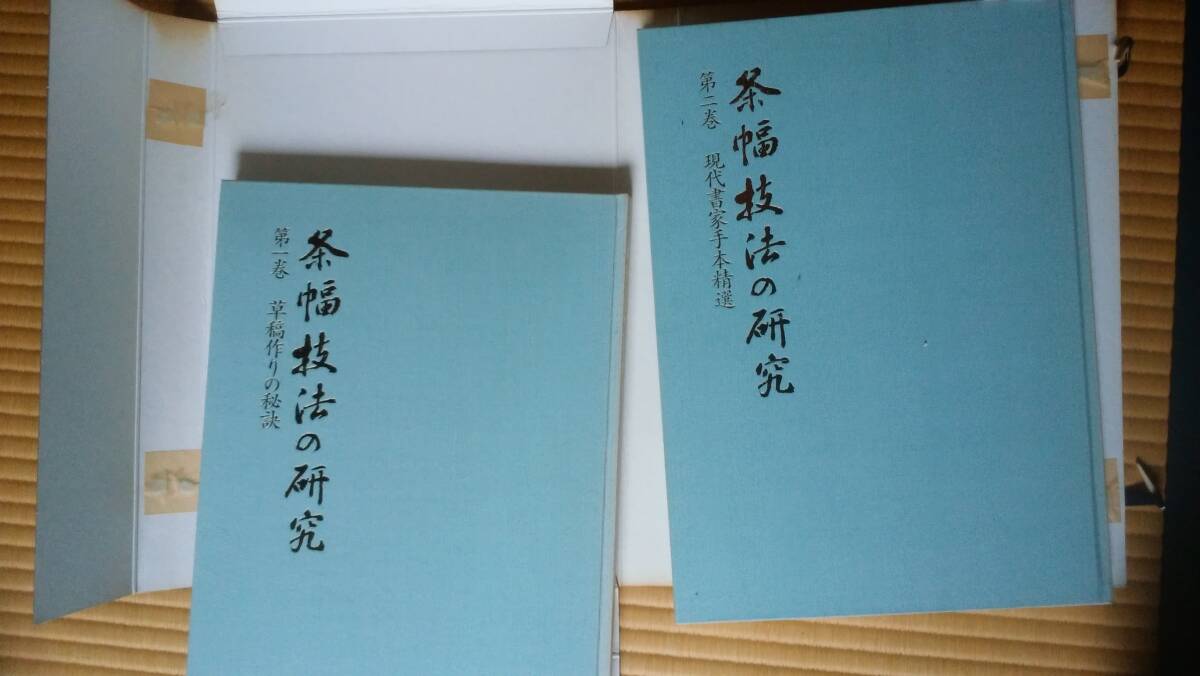 条幅技法の研究
第一巻 草稿作りの秘訣
条幅技法の研究
第二巻 現代書家手本精選